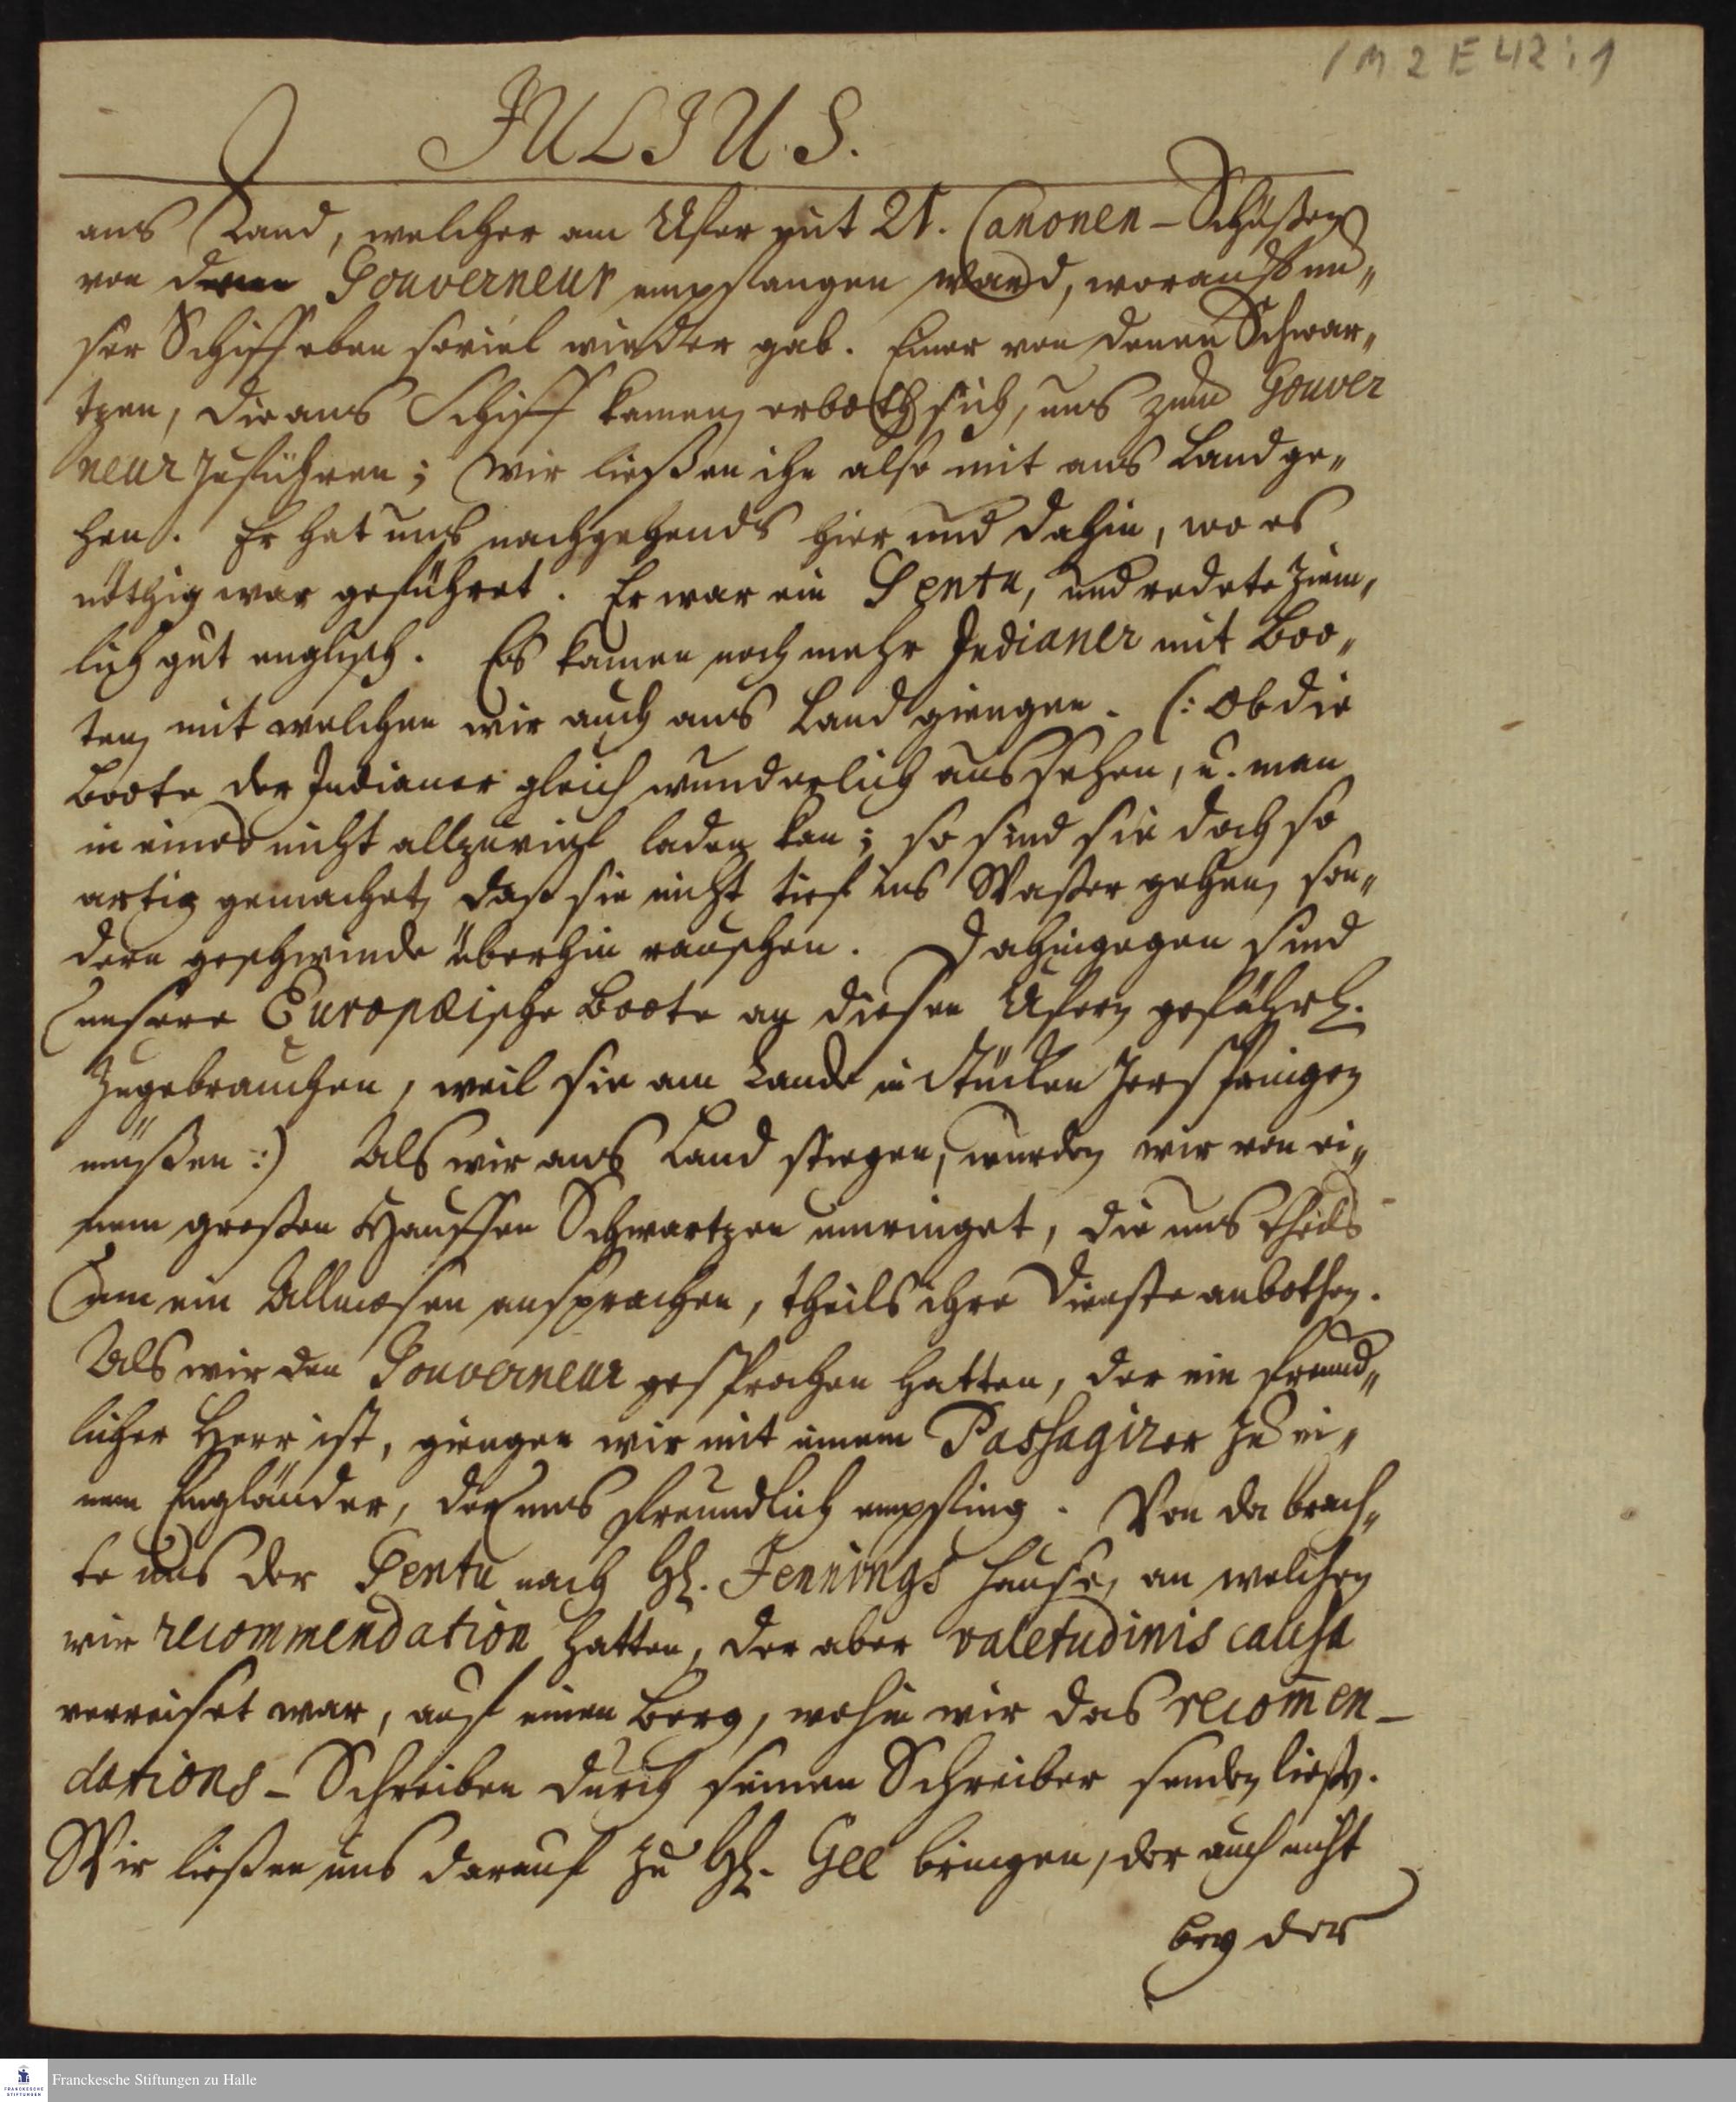 1 M 2 E 42 : 1
JULIUS.
ans Land, welcher am Ufer mit 21. Canonen-Schüßen
von dem Gouverneur empfangen ward, worauf un„
ser Schiff eben soviel wieder gab. Einer von denen Schwar„
tzen, die ans Schiff kamen, erboth sich, uns zum Gouver
neur zuführen; wir ließen ihn also mit ans Land ge„
hen. Er hat uns nachgehends hier und dahin, wo es
nöthig war geführet. Er war ein Gentu, und redete ziem„
lich gut englisch. Es kamen noch mehr Indianer mit Boo„
ten, mit welchen wir auch ans Land giengen. (: Ob die
Boote der Indianer gleich wunderlich aussehen, u. man
in eines nicht allzuviel laden kan; so sind sie doch so
artig gemachet, daß sie nicht tief ins Waßer gehen, son„
dern geschwinde überhin rauschen. Dahingegen sind
unsere Europæische Boote an diesen Ufern gefährl.
zugebrauchen, weil sie am Lande in Stücken zerspringen
müßen :) Als wir ans Land stiegen, wurden wir von ei„
nem großen Hauffen Schwartzen umringet, die uns theils
um ein Allmosen ansprachen, theils ihre Dienste anbothen.
Als wir den Gouverneur gesprochen hatten, der ein freund„
licher Herr ist, giengen wir mit einem Passagirer zu ei„
nem Engländer, der uns freundlich empfing. Von da brach„
te uns der Gentu nach H. Jennings Hause, an welchen
wir recommendation hatten, der aber valetudinis causa
verreiset war, auf einen Berg, wohin wir das recom̄en-
dations-Schreiben durch seinen Schreiber senden ließen.
Wir ließen uns darauf zu H. Gee bringen, der auch nicht
bey der
Franckesche Stiftungen zu Halle
FRANCKESCHE
STIFTUNGEN